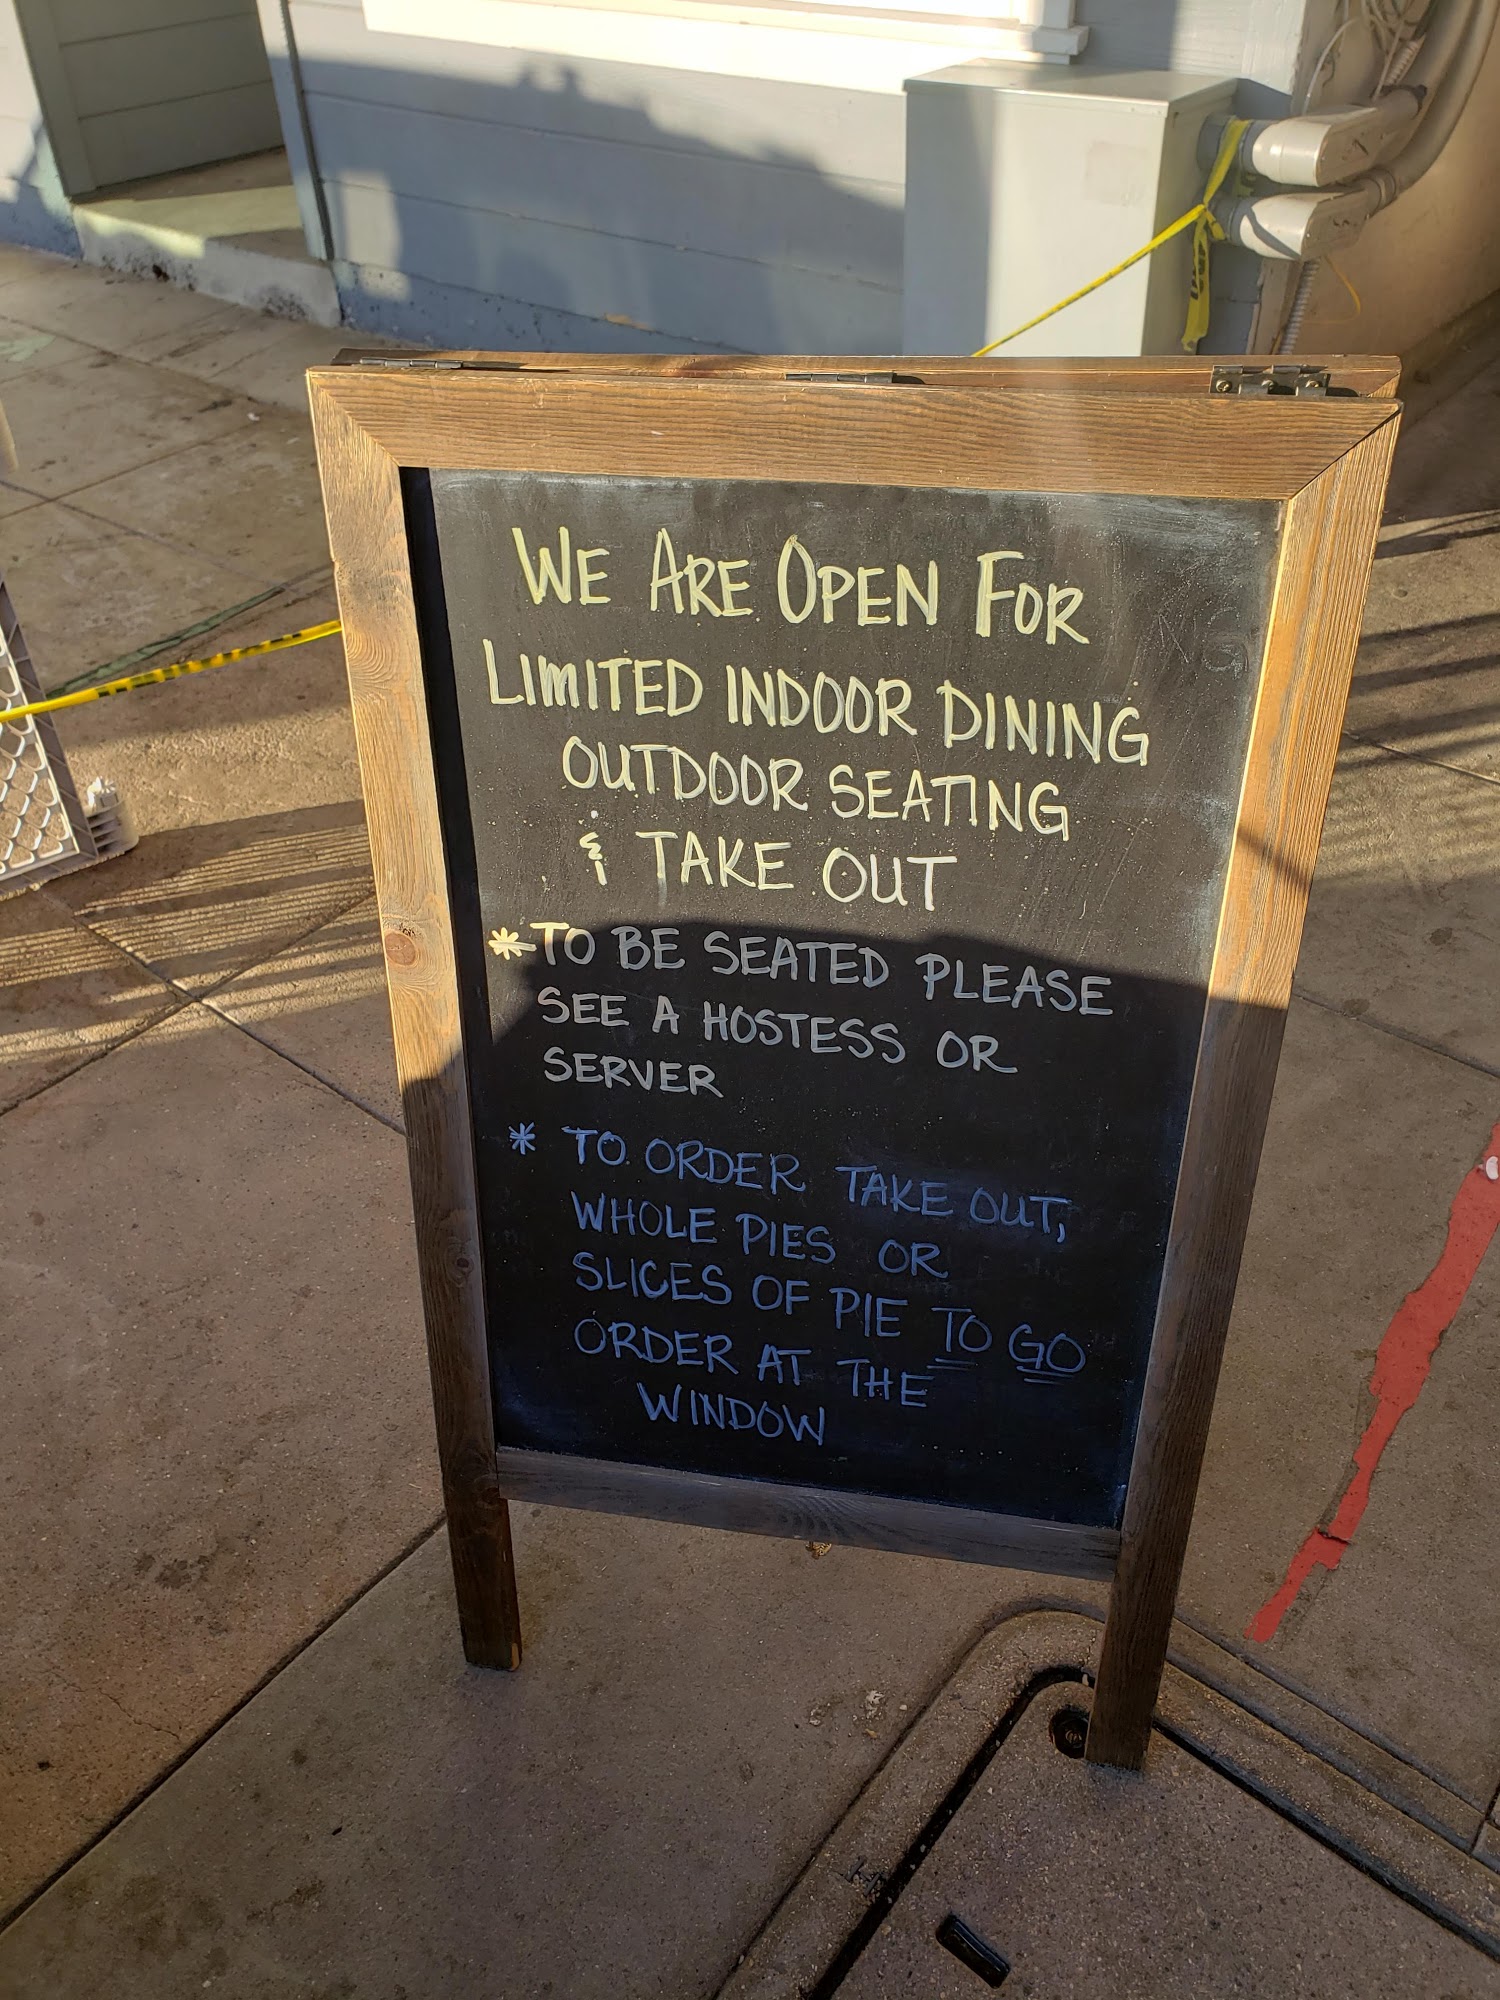 WE ARE OPEN FOR
LIMITED INDOOR DINING
OUTDOOR SEATING
& TAKE OUT
* TO BE SEATED PLEASE
SEE A HOSTESS OR
SERVER
* TO ORDER TAKE OUT,
WHOLE PIES OR
SLICES OF PIE TO GO
ORDER AT THE
WINDOW